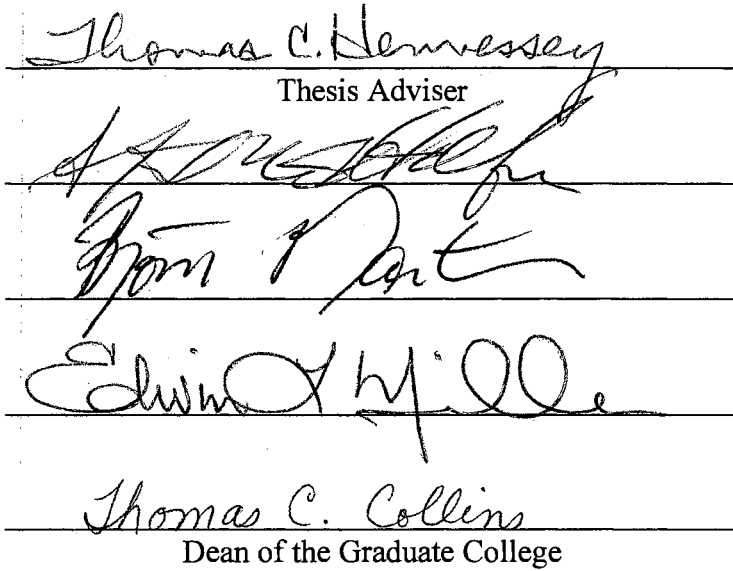 Thomas C. Hennessey
Thesis Adviser
Bjorn Martin
Edwin L Miller
Thomas C. Collins
Dean of the Graduate College